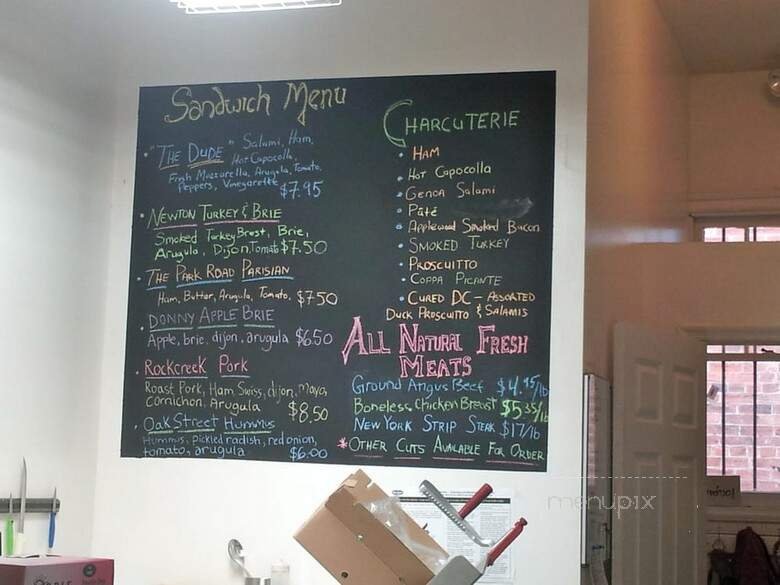 Sandwich Menu
• "THE DUDE" Salami, Ham,
Hot Capocolla,
Fresh Mozzarella, Arugula, Tomato,
Peppers, Vinegarette $7.95
• NEWTON TURKEY & BRIE
Smoked Turkey Brest, Brie,
Arugula, Dijon, Tomato $7.50
• THE PARK ROAD PARISIAN
Ham, Butter, Arugula, Tomato. $7.50
• DONNY APPLE BRIE
Apple, brie, dijon, arugula $6.50
• Rockcreek Pork
Roast Pork, Ham, Swiss, dijon, Mayo,
Cornichon, Arugula $8.50
• Oak Street Hummus
Hummus, pickled radish, red onion,
tomato, arugula $6.00
CHARCUTERIE
• HAM
• Hot Capocolla
• Genoa Salami
• Pâté
• Applewood Smoked Bacon
• SMOKED TURKEY
• PROSCUITTO
• COPPA PICANTE
• CURED DC - ASSORTED
DUCK PROSCUITTO & SALAMIS
ALL NATURAL FRESH
MEATS
Ground Angus Beef $4.95/lb
Boneless Chicken Breast $5.35/lb
NEW YORK STRIP STEAK $17/lb
*OTHER CUTS AVAILABLE FOR ORDER
menupix